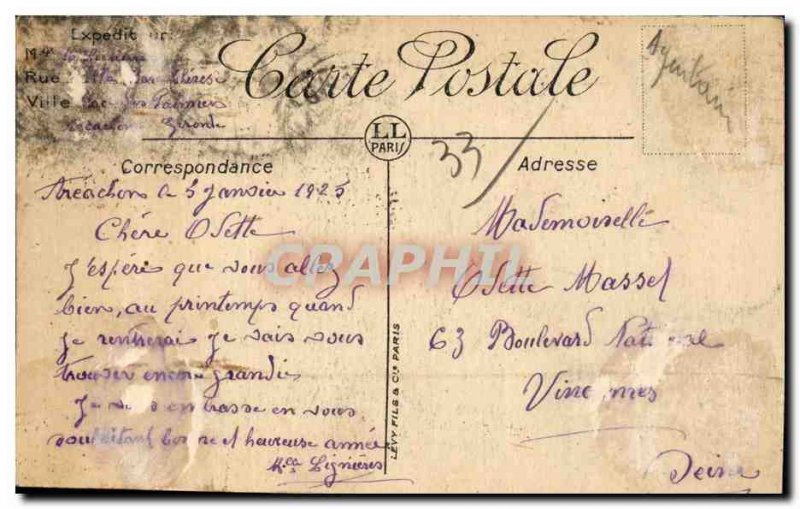 Expediteur
M
Rue
Ville
Gironde
Carte Postale
LL
PARIS
33
Correspondance
Arcachon le 5 Janvier 1925
Chère Odette
J'espére que vous allez
bien, au printemps quand
je rentrerai je vais vous
trouver encore grandie
Je vous embrasse en vous
souhaitant bonne et heureuse année
Lignières
LEVY FILS & Cie PARIS
Adresse
Mademoiselle
Odette Massel
63 Boulevard National
Vincennes
Seine
CRAPHIL